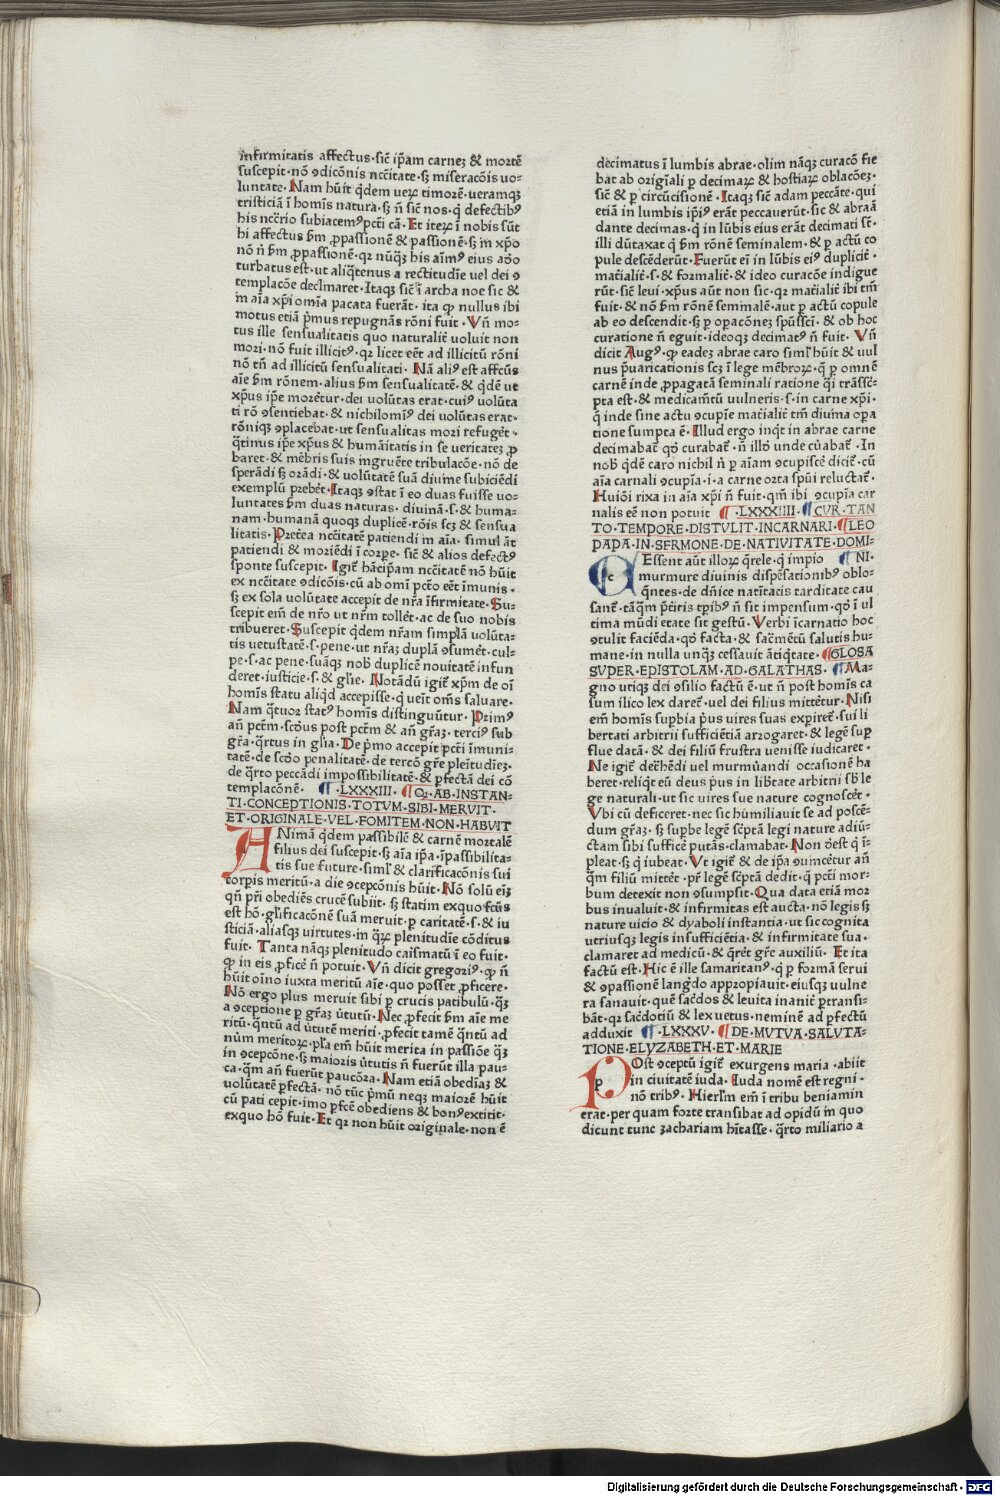 infirmitatis affectus·sic̄ ip̄am carneꝫ & mortē
suscepit·nō ꝯdicōnis nc̄citate·sꝫ miseracōis uo-
luntate·Nam hūit q̄dem ueꝝ timorē·ueramqꝫ
tristiciā ī homīs natura·sꝫ n̄ sic̄ nos·q̄ defectibꝰ
his nec̄rio subiacemꝰ pc̄ti cā·Et iteꝝ ī nobis sūt
hi affectus ẜm ꝓpassionē & passionē·sꝫ in xp̄o
nō n̄ ẜm ꝓpassionē·qꝛ nūqꝫ his aīmꝰ eius adō
turbatus est·ut aliq̄tenus a rectitudīe uel dei ꝯ
templacōe declinaret·Itaqꝫ sic̄ ī archa noe sic &
in aīa xp̄i omīa pacata fuerāt·ita ꝙ nullus ibi
motus etiā p̄mus repugnās rōni fuit·Vn̄ mo-
tus ille sensualitatis quo naturalit̄ uoluit non
mori·nō fuit illicitꝰ·qꝛ licet eēt ad illicitū rōni
nō tn̄ ad illicitū sensualitati·Nā aliꝰ est affcūs
aīe ẜm rōnem·alius ẜm sensualitatē·& q̄dē ut
xp̄us ip̄e morētur·dei uolūtas erat·cuiꝰ uolūta
ti rō ꝯsentiebat·& nichilomīꝰ dei uolūtas erat·
rōniqꝫ ꝯplacebat·ut sensualitas mori refuget·
q̄tinus ip̄e xp̄us & humāitatis in se ueritateꝫ ꝓ
baret·& mēbris suis ingruēte tribulacōe·nō de
sperādi sꝫ orādi·& uolūtatē suā diuine subiciēdi
exemplū p̄ebet·Itaqꝫ ꝯstat ī eo duas fuisse uo-
luntates ẜm duas naturas·diuinā·s·& huma-
nam·humanā quoqꝫ duplicē·rōis scꝫ & sensua
litatis·Pret̄ea nc̄citatē patiendi in aīa·simul āt
patiendi & moriēdi ī corpe·sic̄ & alios defectꝰ
sponte suscepit·Igit̄ hāc ip̄am nc̄citatē nō hūit
ex nc̄citate ꝯdicōis·cū ab omī pctō eēt īmunis·
sꝫ ex sola uolūtate accepit de nr̄a īfirmitate·Su-
scepit em̄ de nr̄o ut nr̄m tollet·ac de suo nobis
tribueret·Suscepit q̄dem nr̄am simplā uolūta-
tis uetustatē·s·pene·ut nr̄aꝫ duplā ꝯsumet·cul-
pe·s·ac pene·suāqꝫ nob̄ duplicē nouitatē infun
deret·iusticie·s·& gl̄ie·Notādū igit̄ xp̄m de oī
homīs statu aliqd̄ accepisse·q̄ ueīt om̄s saluare·
Nam q̄tuor statꝰ homīs distinguūtur·Primꝰ
an̄ pctm̄·sc̄dus post pctm̄ & an̄ gr̄aꝫ·terciꝰ sub
gr̄a·q̄rtus in gl̄ia·De p̄mo accepit pc̄ti īmuni-
tatē·de sc̄do penalitatē·de tercō gr̄e plenitudīeꝫ·
de q̄rto peccādi impossibilitatē·& ꝑfectā dei cō
templacōnē· ¶·LXXXIII· ¶Qꝛ·AB·INSTAN-
TI·CONCEPTIONIS·TOTVM·SIBI·MERVIT·
ET·ORIGINALE·VEL·FOMITEM·NON·HABVIT
ANimā q̄dem passibilē & carnē mortalē
filius dei suscepit·sꝫ aīa ip̄a·īpassibilita-
tis sue future·siml̄ & clarificacōnis sui
corpis meritū·a die ꝯcepcōnis hūit·Nō solū eīꝫ
qn̄ pr̄i obediēs crucē subiit·sꝫ statim exquo fcūs
est hō·gl̄ificacōnē suā meruit·ꝑ caritatē·s·& iu
sticiā·aliasqꝫ uirtutes·in q̄ꝝ plenitudīe cōditus
fuit·Tanta nāqꝫ plenitudo caīsmatū ī eo fuit·
ꝙ in eis ꝓficē n̄ potuit·Vn̄ dicit gregoriꝰ·ꝙ n̄
hūit oīno iuxta meritū aīe·quo posset ꝓficere·
Nō ergo plus meruit sibi ꝑ crucis patibulū·q̄ꝫ
a ꝯceptione ꝑ gr̄aꝫ ūtutū·Nec ꝓfecit ẜm aīe me
ritū·q̄ntū ad ūtutē meriti·ꝓfecit tamē q̄ntū ad
nūm meritoꝝ·pl̄a em̄ hūit merita in passiōe q̄ꝫ
in ꝯcepcōne·sꝫ maioris ūtutis n̄ fuerūt illa pau-
ca·q̄m an̄ fuerūt paucōra·Nam etiā obediaꝫ &
uolūtatē ꝑfectā·nō tūc p̄mū neqꝫ maiorē hūit
cū pati cepit·imo ꝑfcē obediens & bonꝰ extitit·
exquo hō fuit·Et qꝛ non hūit originale·non ē
decimatus ī lumbis abrae·olim nāqꝫ curacō fie
bat ab origīali ꝑ decimaꝝ & hostiaꝝ oblacōeꝫ·
sic̄ & ꝑ circūcisionē·Itaqꝫ sic̄ adam peccāte·qui
etiā in lumbis ip̄iꝰ erāt peccauerūt·sic & abraā
dante decimas·q̄ in lūbis eius erāt decimati st̄·
illi dūtaxat q̄ ẜm rōnē seminalem·& ꝑ actū co
pule descēderūt·Fuerūt eī in lūbis eiꝰ duplicit̄·
mat̄ialit̄·s·& formalit̄·& ideo curacōe indigue
rūt·sic̄ leui·xp̄us aūt non sic·qꝛ mat̄ialit̄ ibi tm̄
fuit·& nō ẜm rōnē seminalē·aut ꝑ actū copule
ab eo descendit·sꝫ ꝑ opacōneꝫ sp̄ūsscī·& ob hoc
curatione n̄ eguit·ideoqꝫ decimatꝰ n̄ fuit·Vn̄
dicit Augꝰ·ꝙ eadeꝫ abrae caro siml̄ hūit & uul
nus p̄uaricationis scꝫ ī lege mēbroꝝ·q̄ ꝑ omnē
carnē inde ꝓpagatā seminali ratione q̄i trāsc̄-
pta est·& medicamt̄ū uulneris·s·in carne xp̄i·
q̄ inde sine actu ꝯcupīe mat̄ialit̄ tm̄ diuina opa
tione sumpta ē·Illud ergo inq̄t in abrae carne
decimabat̄ qd̄ curabat̄·n̄ illd̄ unde cūabat̄·In
nob̄ q̄dē caro nichil n̄ ꝑ aīam ꝯcupiscē dicit̄·cū
aīa carnali ꝯcupīa·i·a carne orta sp̄ui reluctat̄·
Huiōi rixa in aīa xp̄i n̄ fuit·qm̄ ibi ꝯcupīa car
nalis eē non potuit ¶·LXXXIIII·¶CVR·TAN
TO·TEMPORE·DISTVLIT·INCARNARI·¶LEO
PAPA·IN·SERMONE·DE·NATIVITATE·DOMI-
CEssent aūt illoꝝ q̄rele·q̄ impio ¶NI·
murmure diuinis dispēsationibꝰ oblo-
q̄ntes·de dn̄ice natītacis tarditate cau
sant̄·tāq̄m p̄citis tp̄ibꝰ n̄ sit impensum·qd̄ ī ul
tima mūdi etate sit gestū·Verbi īcarnatio hoc
ꝯtulit faciēda·qd̄ facta·& sac̄mētū salutis hu-
mane·in nulla unq̄ꝫ cessauit ātiq̄tate·¶GLOSA
SVPER·EPISTOLAM·AD·GALATHAS· ¶Ma-
gno utiqꝫ dei ꝯsilio factū ē·ut n̄ post homīs ca
sum īlico lex daret̄·uel dei filius mittētur·Nisi
em̄ homīs supbīa p̄us uires suas expiret̄·sui li
bertati arbitrii sufficiētiā arrogaret·& legē sup
flue datā·& dei filiū frustra uenisse iudicaret·
Ne igit̄ det̄hēdi uel murmūandi occasionē ha
beret·reliq̄t eū deus p̄us in lib̄tate arbitrii sb̄ le
ge naturali·ut sic uires sue nature cognoscēt·
Vbi cū deficeret·nec sic humiliauit se ad poscē-
dum gr̄aꝫ·sꝫ supbe legē sc̄ptā legi nature adiū-
ctam sibi sufficē putās·clamabat·Non d̄est q̄ ī-
pleat·sꝫ q̄ iubeat·Vt igit̄ & de ip̄a ꝯuincētur an̄
q̄m filiū mittēt·pr̄ legē sc̄ptā dedit·q̄ pcti mor-
bum detexit non ꝯsumpsit·Qua data etiā mor
bus inualuit·& infirmitas est aucta·nō legis sꝫ
nature uicio & dyaboli instantia·ut sic cognita
utriusqꝫ legis insufficiētia·& infirmitate sua·
clamaret ad medicū·& q̄rēt gr̄e auxiliū·Et ita
factū est·Hic ē ille samaritanꝰ·q̄ ꝑ formā serui
& ꝯpassionē lang̊do appropiauit·eiusqꝫ uulne
ra sanauit·quē sac̄dos & leuita inanit̄ ꝑtransi-
bāt·qꝛ sac̄dotiū & lex uetus·neminē ad ꝑfectū
adduxit ¶·LXXXV· ¶DE·MVTVA·SALVTA-
TIONE·ELYZABETH·ET·MARIE
POst ꝯceptū igit̄ exurgens maria·abiit
in ciuitatē iuda·Iuda nomē est regni·
nō tribꝰ·Hierl̄m em̄ ī tribu beniamin
erat·per quam forte transibat ad opidū in quo
dicunt tunc zachariam hītasse·q̄rto miliario a
Digitalisierung gefördert durch die Deutsche Forschungsgemeinschaft - DFG